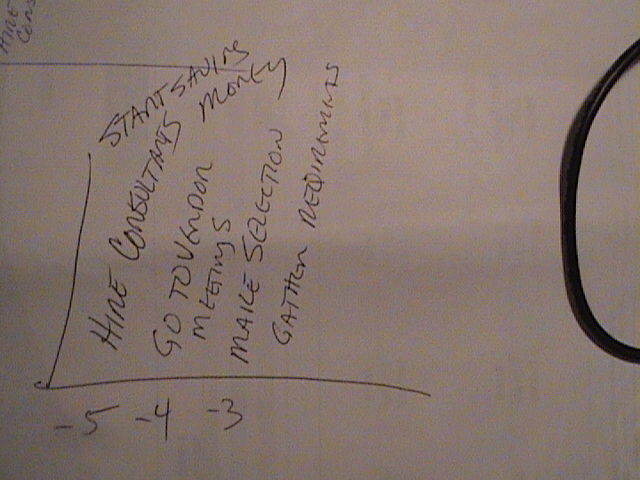 HIRE
CONS
START SAVING
MONEY
HIRE CONSULTANTS
GO TO VENDOR
MEETINGS
MAKE SELECTION
GATHER REQUIREMENTS
-5
-4
-3